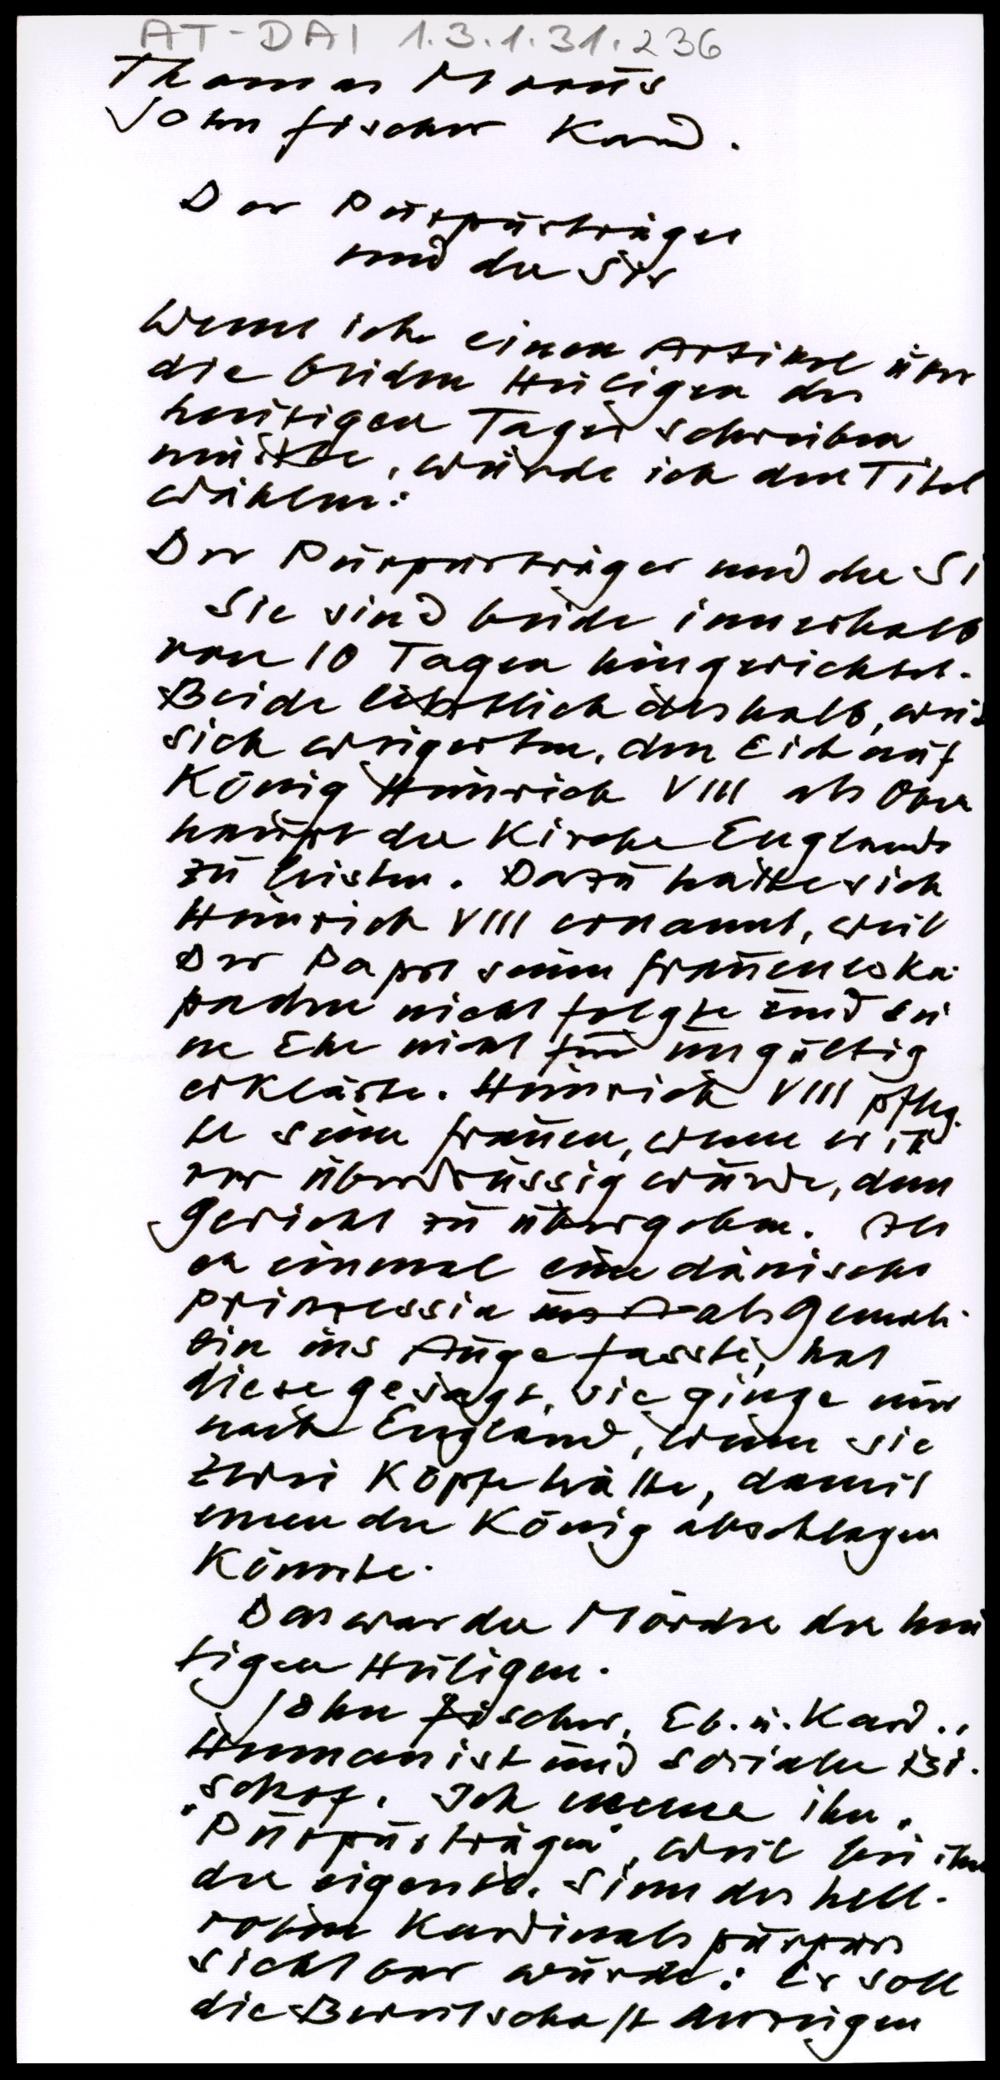 AT-DAI 1.3.1.31.236
Thomas Morus
John Fischer Kard.
Der Purpurträger
und der Sir
Wenn ich einen Artikel über
die beiden Heiligen des
heutigen Tages schreiben
müsste, würde ich den Titel
wählen:
Der Purpurträger und der Si
Sie sind beide innerhalb
von 10 Tagen hingerichtet.
Beide letztlich deshalb, weil
sich weigerten, den Eid auf
König Heinrich VIII als Ober
haupt der Kirche Englands
zu leisten. Dazu hatte sich
Heinrich VIII ernannt, weil
der Papst seinen Fraueneska-
paden nicht folgte und sei
ne Ehe nicht für ungültig
erklärte. Heinrich VIII pfleg-
te seine Frauen, wenn er ih
rer überdrüssig wurde, dem
Gericht zu übergeben. Als
er einmal eine dänische
Prinzessin ins A als Gemah-
lin ins Auge fasste, hat
diese gesagt, sie ginge nur
nach England, wenn sie
zwei Köpfe hätte, damit
einen der König abschlagen
könnte.
Das war der Mörder der heu
tigen Heiligen.
John Fischer, Eb. u. Kard.,
Humanist und sozialer Bi-
schof. Ich nenne ihn
"Purpurträger", weil bei ihm
der eigentl. Sinn des hell-
roten Kardinalspurpurs
sichtbar wurde: Er soll
die Bereitschaft anzeigen